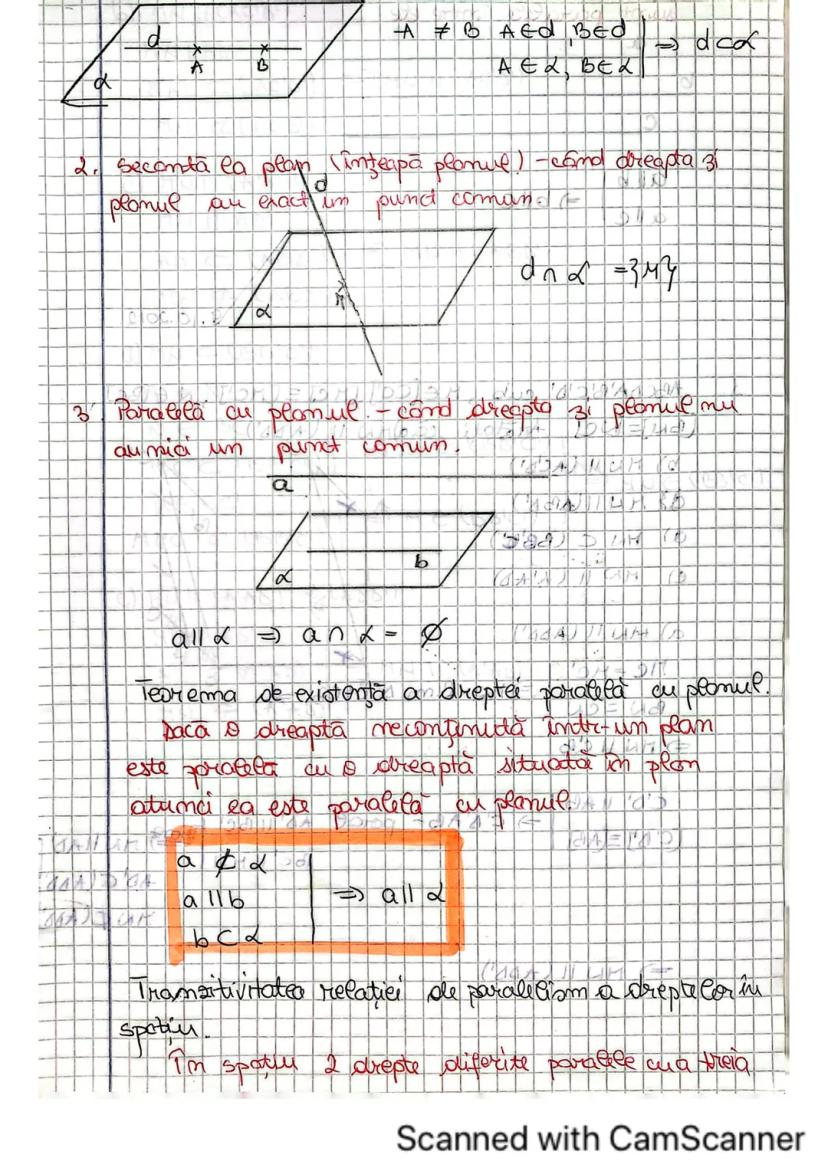 A ≠ B A∈d, B∈d | ⇒ d⊂α
A∈α, B∈α
d
A B
α
2. Secantă la plan (înțeapă planul) - când dreapta și
d
planul au exact un punct comun.
d∩α = {M}
M
α
3. Paralelă cu planul. - când dreapta și planul nu
au nici un punct comun.
a
b
α
a∥α ⇒ a∩α = ∅
Teorema de existență a dreptei paralelă cu planul.
Dacă o dreaptă neconținută într-un plan
este paralelă cu o dreaptă situată în plan
atunci ea este paralelă cu planul.
a ⊄ α
a∥b ⇒ a∥α
b⊂α
Tranzitivitatea relației de paralelism a dreptelor în
spațiu.
În spațiu 2 drepte diferite paralele cu a treia
Scanned with CamScanner